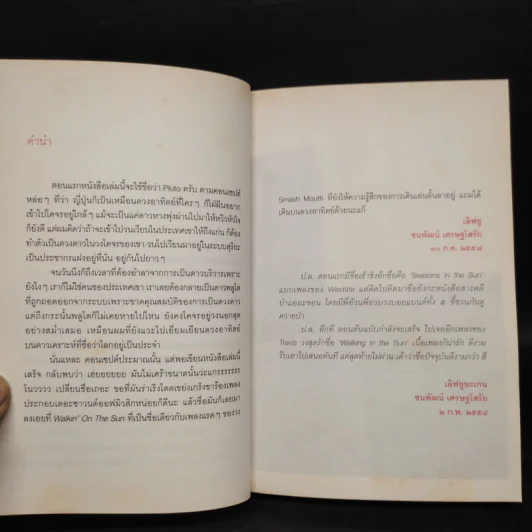 คำนำ
ตอนแรกหนังสือเล่มนี้จะใช้ชื่อว่า Pluto ครับ ตามคอนเซปต์
หล่อๆ ที่ว่า ญี่ปุ่นก็เป็นเหมือนดวงอาทิตย์ที่ใครๆ ก็ไม่มีวันอยาก
เข้าไปโคจรอยู่ใกล้ๆ แม้จะเป็นแค่ดาวหางพุ่งผ่านไปมาให้หวิวหัวใจ
ก็ยังดี แต่ผมคิดว่าถ้าจะเข้าไปวนเวียนในประเทศเขาให้ถึงแก่น ก็ต้อง
ทำตัวเป็นดวงดาวในวงโคจรของเขา วนไปเวียนมาอยู่ในระบบสุริยะ
เป็นประชากรแฝงอยู่ที่นั่น อยู่กันไปยาวๆ
จนวันนึงก็ถึงเวลาที่ต้องอำลาจากการเป็นดาวบริวารเพราะ
ยังไงๆ เราก็ไม่ใช่คนของประเทศเขา เราเลยต้องกลายเป็นดาวพลูโต
ที่ถูกถอดออกจากระบบเพราะขาดคุณสมบัติของการเป็นดวงดาว
แต่ถึงกระนั้นพลูโตก็ไม่เคยหายไปไหน ยังคงโคจรอยู่วงนอกสุด
อย่างสม่ำเสมอ เหมือนผมที่ยังแวะไปเยี่ยมเยียนดวงอาทิตย์
บนดาวเคราะห์ที่ชื่อว่าโลกอยู่เป็นประจำ
นั่นแหละ คอนเซปต์ประมาณนั้น แต่พอเขียนหนังสือเล่มนี้
เสร็จ กลับพบว่า เฮ่ยยยยยย มันไม่เศร้าขนาดนั้นว่ะแกรรรรรรร
โนวววว เปลี่ยนชื่อเถอะ ขอที่มันร่าเริงโดดเขย่งเกร็งขาร้องเพลง
ประกอบเดอะซาวนด์ออฟมิวสิกหน่อยก็ดีนะ แล้วชื่อมันก็เลยมา
ลงเอยที่ Walkin' On The Sun ที่เป็นชื่อเดียวกับเพลงแรดๆ ของวง
Smash Mouth ที่ยังให้ความรู้สึกของการเดินเล่นลั้นลาอยู่ แถมได้
เดินบนดวงอาทิตย์ด้วยนะแก๊
เลิฟยู
ชนพัฒน์ เศรษฐโสรัถ
๓๐ ก.ค. ๒๕๕๗
ป.ล. ตอนแรกมีชื่อเข้าชิงอีกชื่อคือ 'Seasons in the Sun'
แบบเพลงของ Westlife แต่คิดไปคิดมาชื่อยังกะหนังสือสารคดี
ป่าแอมะซอน โดยมีพี่อ้วนพี่อวบวงบอยแบนด์ทั้ง ๕ ขี่ชวนกันดู
ควายป่า
ป.ล. อีกที ตอนต้นฉบับกำลังจะเสร็จ ไปเจออีกเพลงของ
Travis วงสุดรักชื่อ 'Walking in the Sun' เนื้อเพลงก็น่ารัก ดีงาม
รีบเอาไปเสนอทันที แต่สุดท้ายไม่ผ่าน เค้าว่าชื่อปัจจุบันดีงามกว่า ฮี
เลิฟยูละเกน
ชนพัฒน์ เศรษฐโสรัถ
๒ ก.พ. ๒๕๕๘